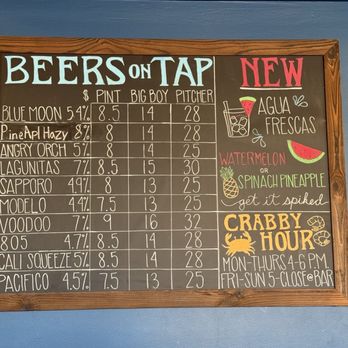 BEERS ON TAP
$ PINT BIG BOY PITCHER
BLUE MOON 5.4% 8.5 14 28
PineApl Hazy 8% 8 14 28
ANGRY ORCH 5% 8 14 25
LAGUNITAS 7% 8.5 15 30
SAPPORO 4.9% 8 13 25
MODELO 4.4% 7.5 13 25
VOODOO 7% 9 16 32
805 4.7% 8.5 14 28
CALI SQUEEZE 5% 8.5 14 28
PACIFICO 4.5% 7.5 13 25
NEW
AGUA
FRESCAS
WATERMELON
OR
SPINACH PINEAPPLE
get it spiked
CRABBY
HOUR
MON-THURS 4-6 PM
FRI-SUN 5-CLOSE@BAR